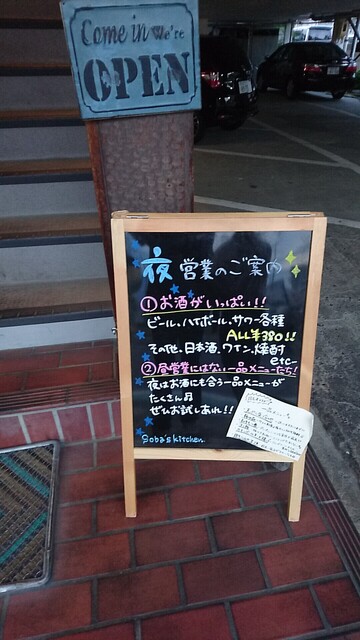 Come in we're
OPEN
夜営業のご案内
①お酒がいっぱい!!
ビール、ハイボール、サワー各種
ALL¥380!!
その他、日本酒、ワイン、焼酎
etc…
②昼営業にはない一品メニューたち!
夜はお酒にも合う一品メニューが
たくさん♫
ぜひお試しあれ!!
Goba's kitchen.